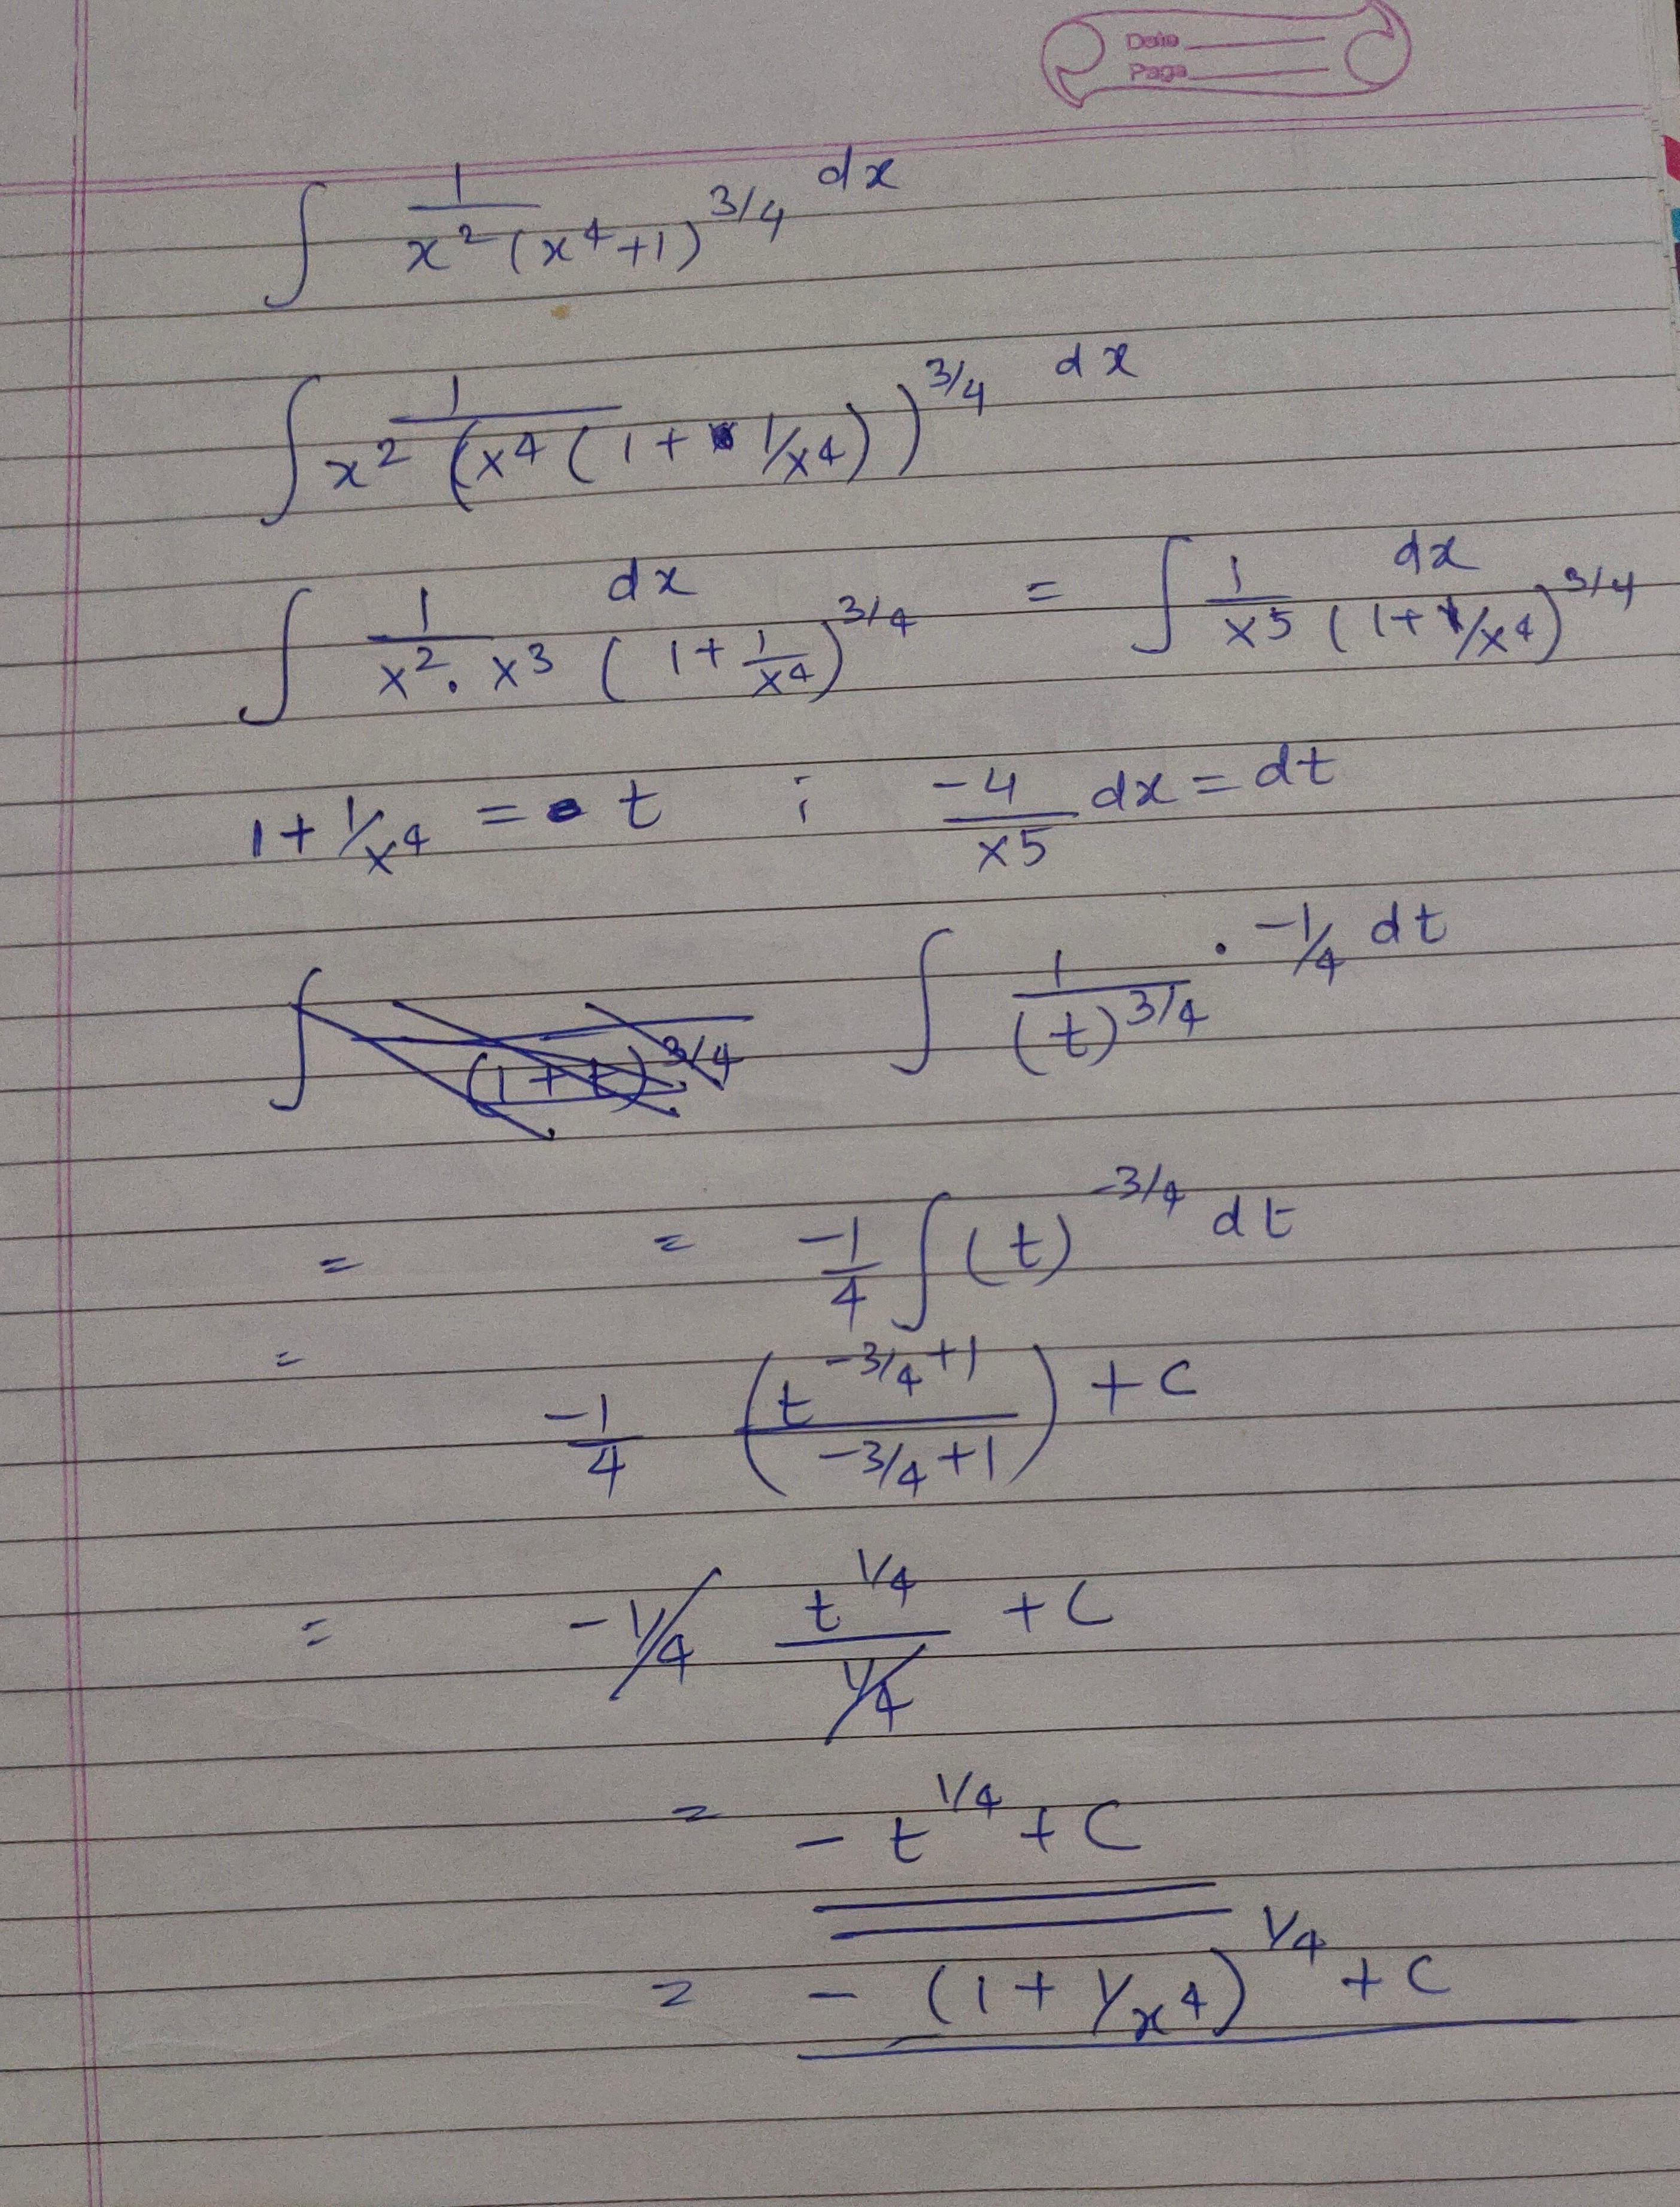 Date
Page
∫ 1/x²(x⁴+1)^3/4 dx
∫ 1/x²(x⁴(1+1/x⁴))^3/4 dx
∫ 1/x².x³ dx/(1+1/x⁴)^3/4 = ∫ 1/x5 dx/(1+1/x⁴)^3/4
1+1/x⁴ = t ; -4/x5 dx = dt
∫ (1+t)^3/4 ∫ 1/(t)^3/4 . -1/4 dt
= = -1/4 ∫ (t)^-3/4 dt
= -1/4 (t^-3/4+1/-3/4+1) + C
= -1/4 t^1/4/1/4 + C
= - t^1/4 + C
= - (1+1/x⁴)^1/4 + C